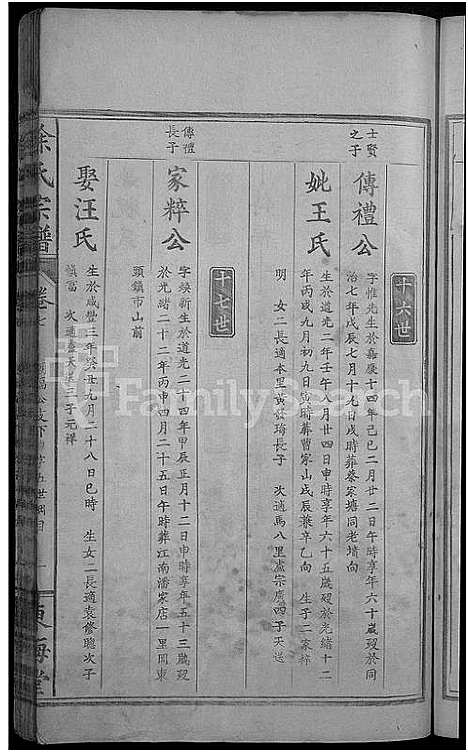 十六世
士賢之子
傳禮公
字惟先生於嘉慶十四年己巳二月廿二日午時享年六十歲歿於同
治七年戊辰七月十九日戌時葬蔡家塘同老墳向
妣王氏
生於道光二年壬午八月廿四日申時享年六十五歲歿於光緒十二
年丙戌九月初九日戌時葬曹家山戌辰兼辛乙向 生子二家粹
明 女二長適本里黃 長子 次適馬八里盧宗廣四子天送
十七世
傳禮長子
家粹公
字煥新生於道光二十四年甲辰正月十二日申時享年五十三歲歿
於光緒二十二年丙申四月二十五日午時葬江南潘家店一里岡東
頭鎮市山前
娶汪氏
生於咸豐三年癸丑九月二十八日巳時 生女二長適袁修聰次子
慎富 次適 三子元祥
徐氏宗譜
卷七
東海堂
FamilySearch